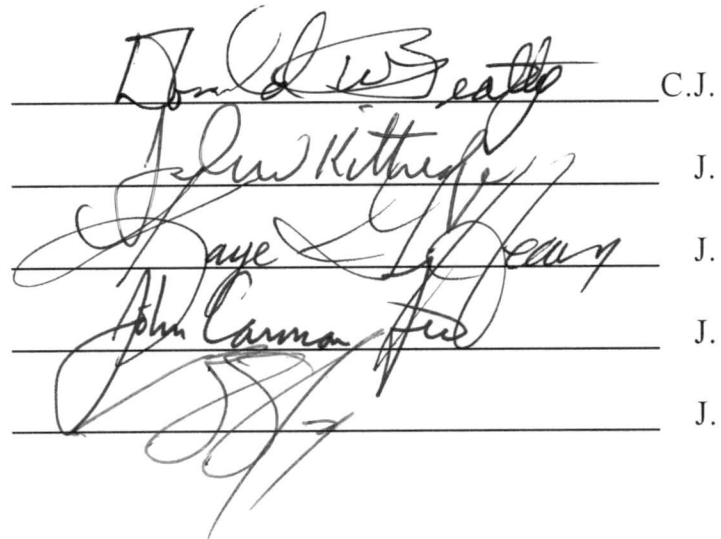 Donald W Beatty C.J.
John W Kittredge J.
Kaye G. Hearn J.
John Cannon Few J.
J.